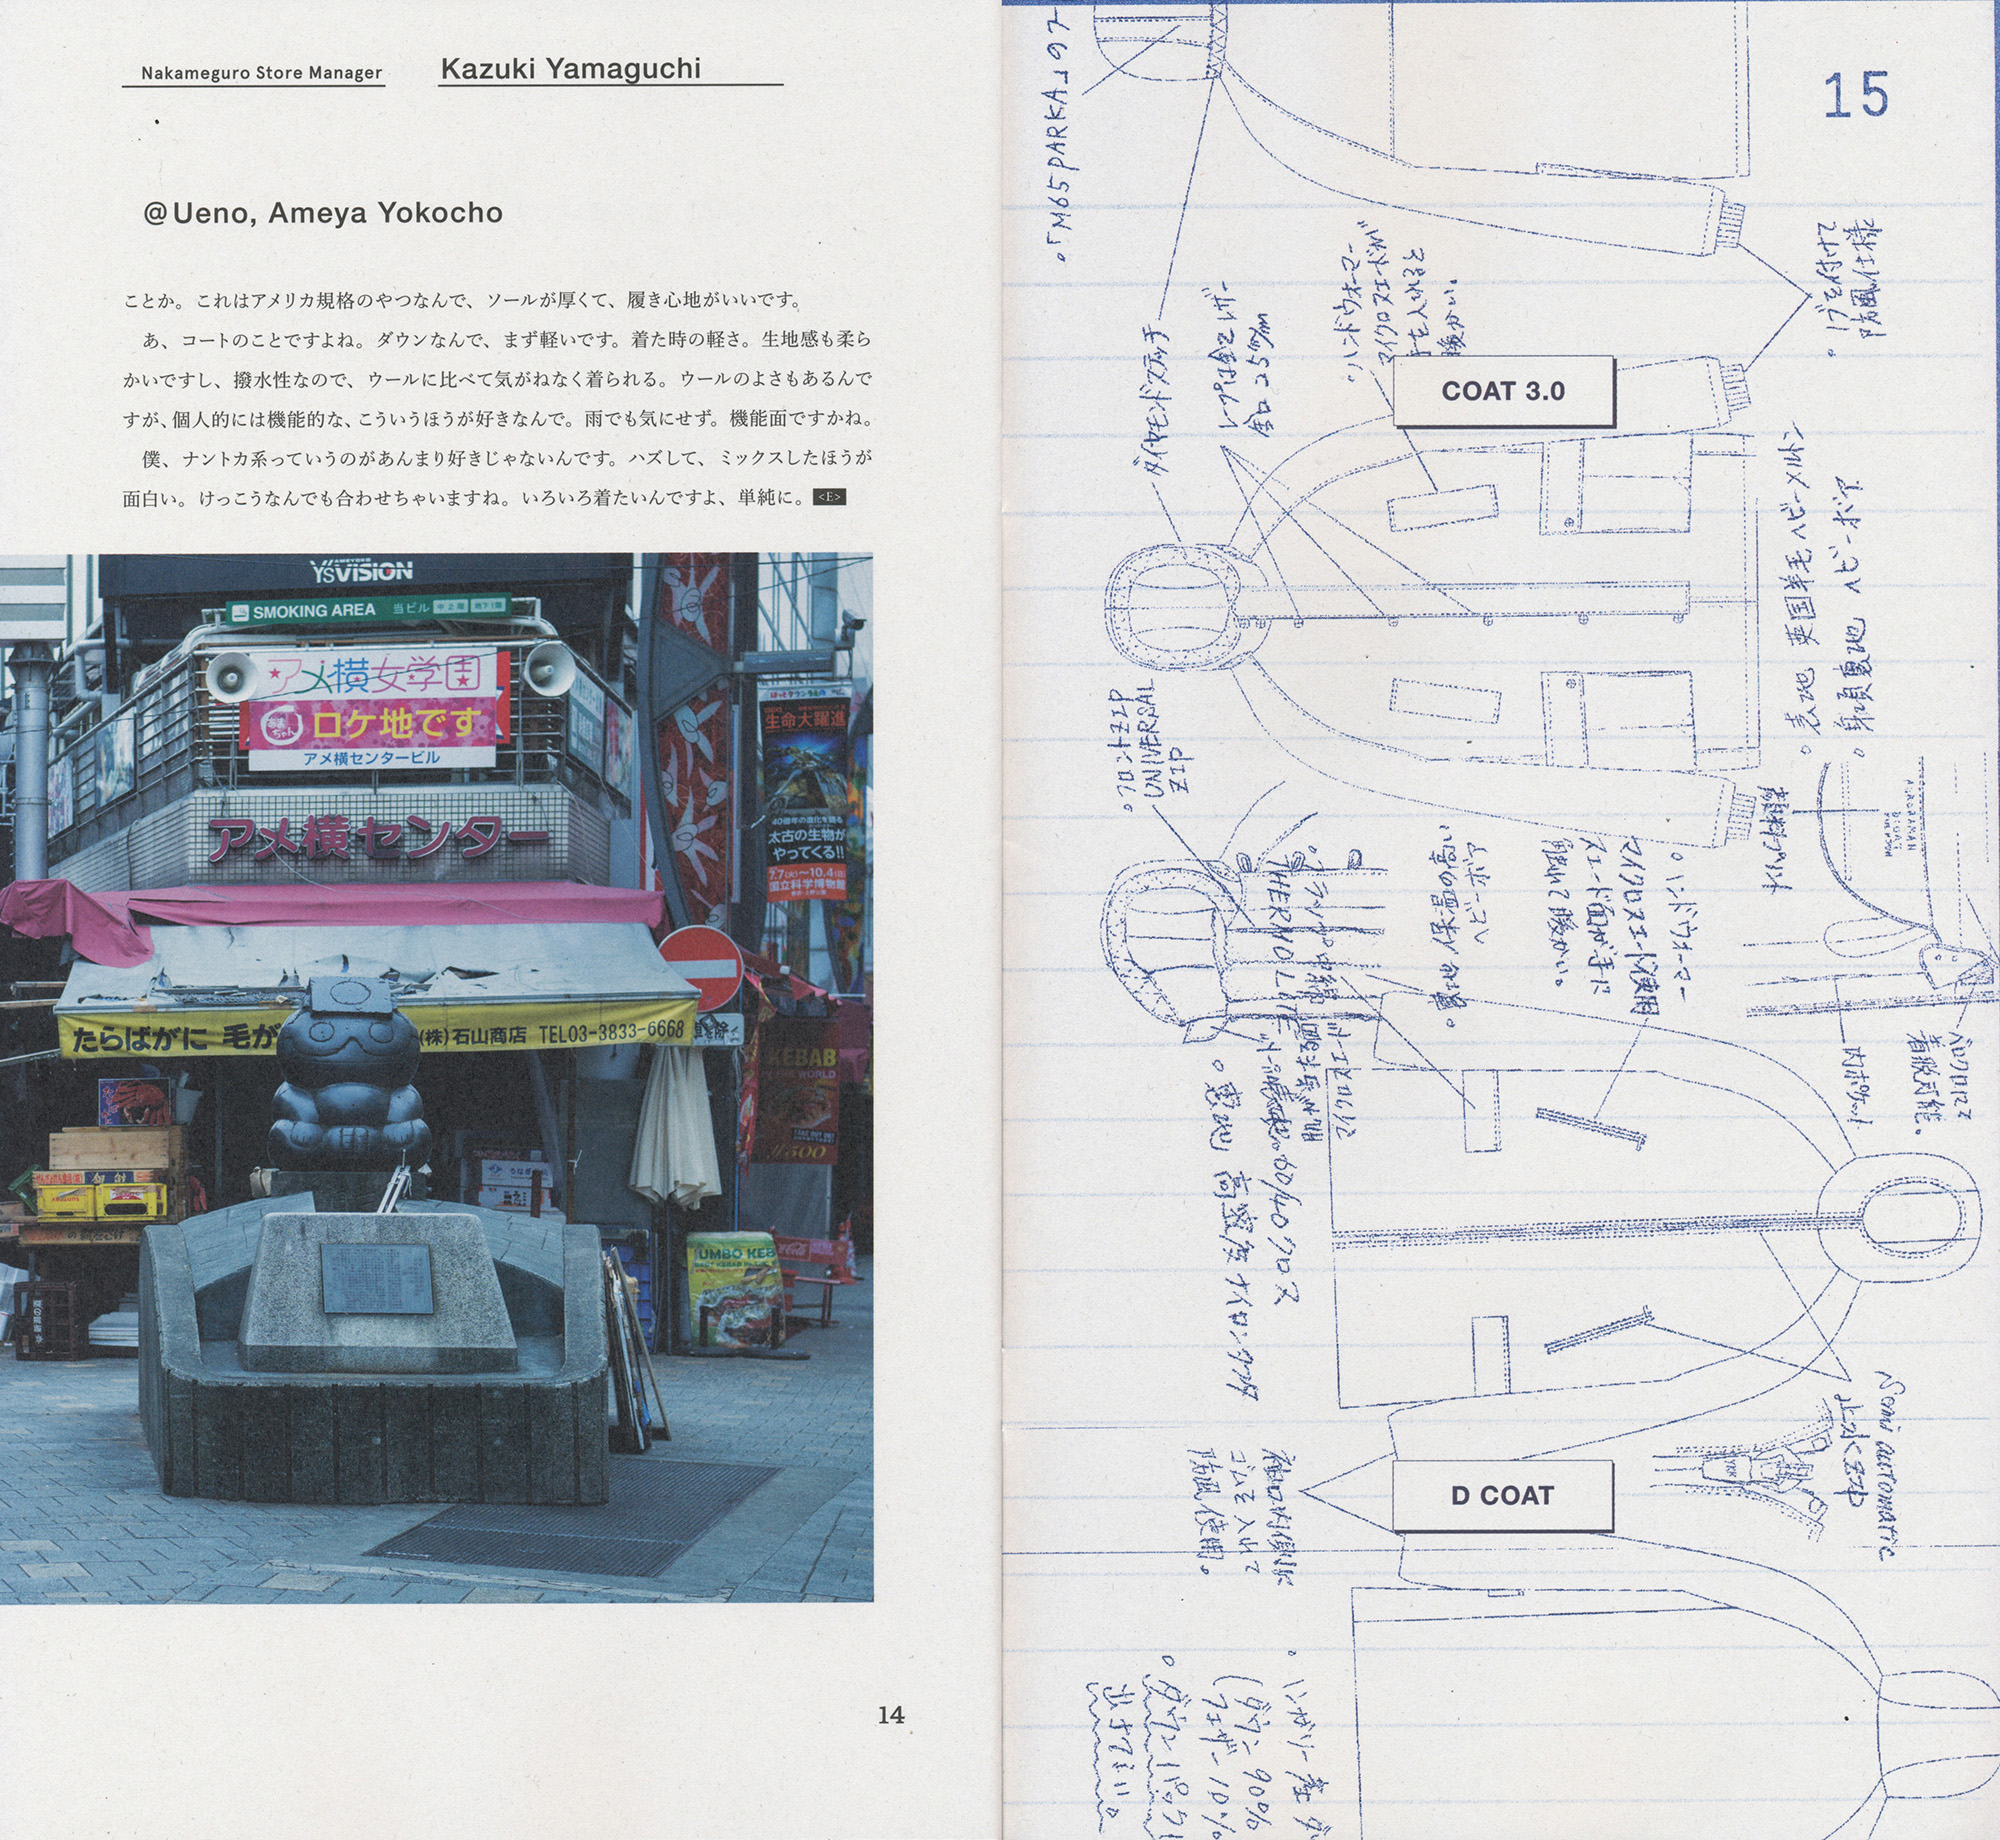 Nakameguro Store Manager
Kazuki Yamaguchi
@Ueno, Ameya Yokocho
ことか。これはアメリカ規格のやつなんで、ソールが厚くて、履き心地がいいです。
あ、コートのことですよね。ダウンなんで、まず軽いです。着た時の軽さ。生地感も柔ら
かいですし、撥水性なので、ウールに比べて気がねなく着られる。ウールのよさもあるんで
すが、個人的には機能的な、こういうほうが好きなんで。雨でも気にせず。機能面ですかね。
僕、ナントカ系っていうのがあんまり好きじゃないんです。ハズして、ミックスしたほうが
面白い。けっこうなんでも合わせちゃいますね。いろいろ着たいんですよ、単純に。<E>
Y'SVISION
SMOKING AREA 当ビル 中2階 地下1階
アメ横女学園
あまちゃん
ロケ地です
アメ横センタービル
アメ横センター
生命大躍進
40億年の進化を辿る
太古の生物が
やってくる!!
7.7(火)〜10.4(日)
国立科学博物館
たらばがに 毛が
(株)石山商店 TEL03-3833-6668
KEBAB
WORLD
¥500
UMBO KEB
14
15
「M65 PARKA」の
付けて
防風仕様
ハンドウォーマー
マイクロスエードが
手を入れると
暖かい。
ダイヤモンドステッチ
25m/m
COAT 3.0
表地 英国羊毛ヘビーメルトン
身頃裏地 ヘビーボア
フロントZIP
UNIVERSAL
ZIP
顔料プリント
ハンドウォーマー
マイクロスエード使用
スエード面が手に
触れて暖かい。
裏地 保温の高い
ヘビーボア
THERMOLITE
60/40クロス
裏地 高密度ナイロンタフタ
内ポケット
ベロクロにて
着脱可能。
袖口内側に
ゴムを入れて
防風使用。
D COAT
Semi automatic
止水ZIP
YKK
ハンガリー産ダ
(ダウン 90%
フェザー 10%
ダウンパック